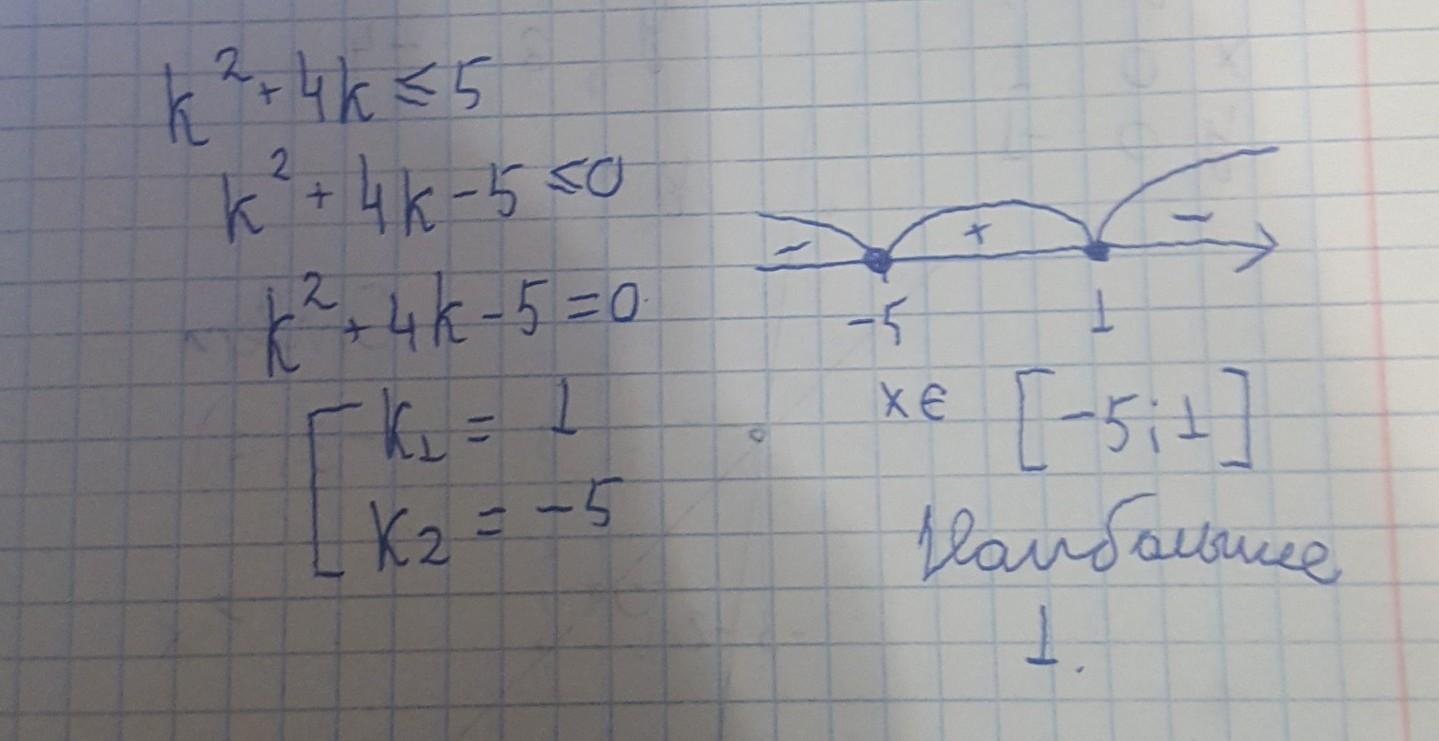 k² + 4k ≤ 5
k² + 4k - 5 ≤ 0
k² + 4k - 5 = 0
k₁ = 1
k₂ = -5
- + -
-5 1
x ∈ [-5; 1]
Наибольшие
1.